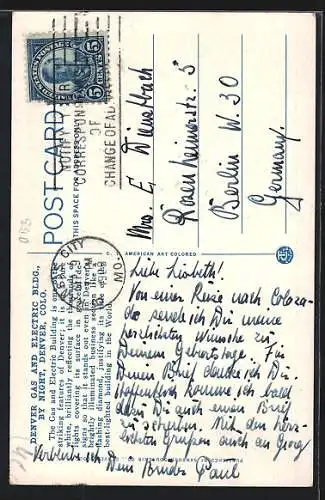 POSTCARD
THIS SPACE FOR ADDRESS ONLY
U.S. POSTAGE
5 CENTS 5
NOTIFY YOUR
CORRESPONDENTS
OF
CHANGE OF ADDRESS
CITY
MO.
DENVER GAS AND ELECTRIC BLDG.,
BY NIGHT, DENVER, COLO.
The Gas and Electric Building is one of the
striking features of Denver; it is pure
white, brilliantly reflecting the thousands of
lights covering its surface in graceful de-
signs so that it stands out even in Denver's
brightly illuminated business section like a
flashing diamond, justifying its claim of
best-lighted building in the World.
AMERICAN ART COLORED
Mrs. E. Dienstbach
Rosenheimerstr. 5
Berlin W. 30
Germany.
Liebe Lisbeth!
Von einer Reise nach Colora-
do sende ich Dir meine
herzlichsten Wünsche zu
Deinem Geburtstage. Für
Deinen Brief danke ich Dir
Hoffentlich komme ich bald
dazu Dir auch einen Brief
zu schreiben. Mit den herz-
lichsten Grüßen auch an Georg
Verbleibe ich Dein Bruder Paul